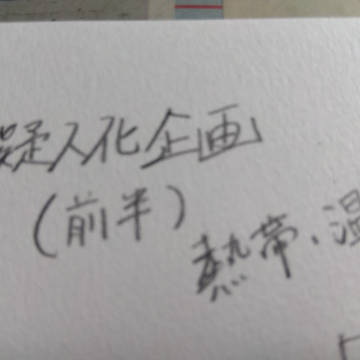 擬人化企画
(前半)
熱帯、温